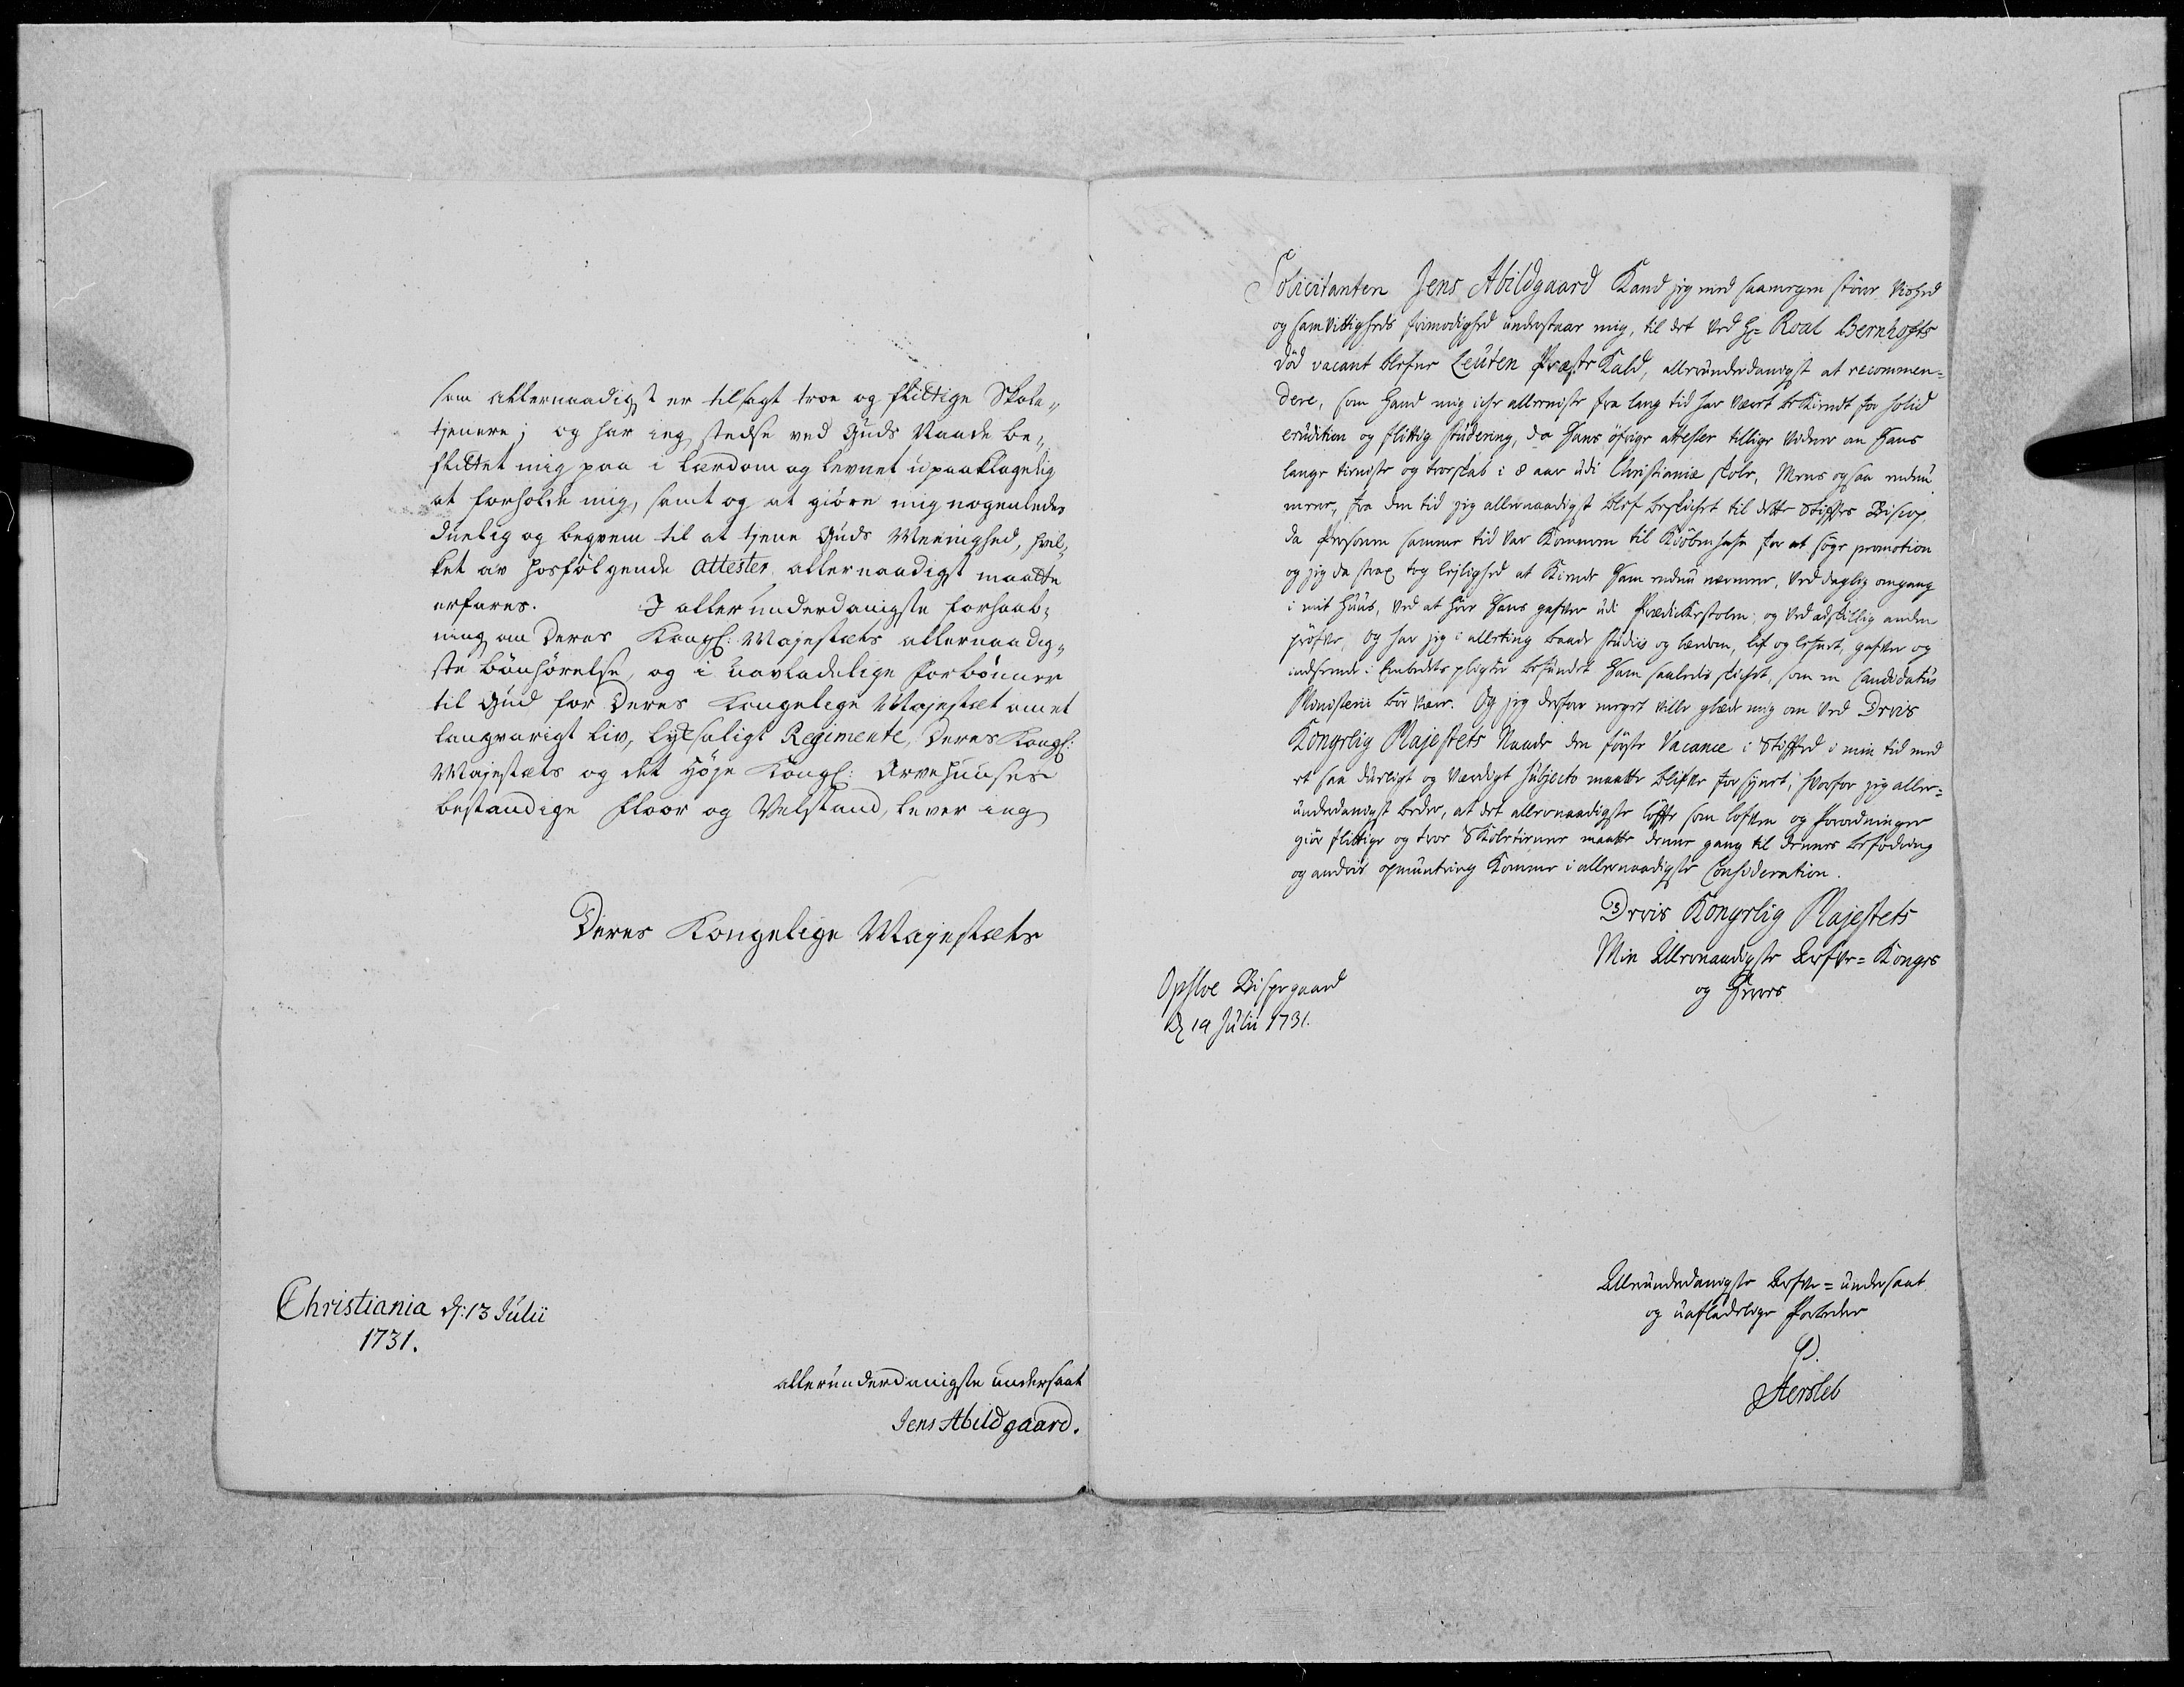 som allernaadigst er tilsagt troe og flittige Skole„
tjenere; og har ieg stedse ved Guds Naade be„
flittet mig paa i Lærdom og levnet upaaklagelig
at forholde mig, samt og at giöre mig nogenledes
duelig og begvem til at tjene Guds Meenighed, hvil„
ket av hosfölgende Attester allernaadigst maatte
erfares. I allerunderdanigste forhaab„
ning om Deres Kongl: Majestæts allernaadig„
ste bönhörelse, og i uavladelige forbönner
til Gud for Deres Kongelige Majestæt om et
langvarigt Liv, lyksaligt Regimente, Deres Kongl:
Majestæts og det Höje Kongl: Arvehuuses
bestandige Floor og Velstand, lever ieg
Deres Kongelige Majestæts
Christiania d: 13 Julii
1731.
allerunderdanigste undersaat
Jens Abildgaard.
Solicitanten Jens Abildgaard Kand jeg med saamegen större Vished
og samvittigheds frimodighed understaar mig, til det ved Hr= Roal Bernhofts
död vacant blefne Leuten Præste Kald, allerunderdanigst at recommen=
dere, som Hand mig icke alleeniste fra lang tid har været bekiendt for solid
erudition og flittig studering, da Hans öfrige attester tillige vidner om Hans
lange tieniste og troeskab i 8 aar udi Christianiæ skole, Mens ogsaa endnu
meere, fra den tid jeg allernaadigst blef beskicket til dette Stiftes Biscop,
da Personen samme tid var kommen til Kiöbenhafn for at söge promotion
og jeg da strax tog leylighed at kiende Ham endnu nermere, ved daglig omgang
i mit Huus, ved at höre Hans gafver udi Prædickestolen, og ved adskillig anden
pröfve, og har jeg i allerting baade studiis og lærdom, lif og lefnet, gafver og
indseende i Embedets pligter befundet Ham saaledis skicket, som en Candidatus
Ministerii bör være. Og jeg derfore meget ville glæde mig om ved Dereis
Kongelig Majestets Naade den förste Vacance i Stiftet i min tid med
et saa dueligt og værdigt Subjecto maatte blifve forsynet; hvorfor jeg aller=
underdanigst beder, at det allernaadigste löfte som lofven og Forordninger
giör flittige og troe Skoletienere maatte denne gang til dennes befodring
og andris opmuntring komme i allernaadigste Consideration.
Dereis Kongelig Majestets
Min Allernaadigste Arfve= Konges
og Herres
Opsloe Bispegaard
d 14 Julii 1731.
Allerunderdanigste Arfve= undersaat
og uafladelige Forbeder
P.
Hersleb